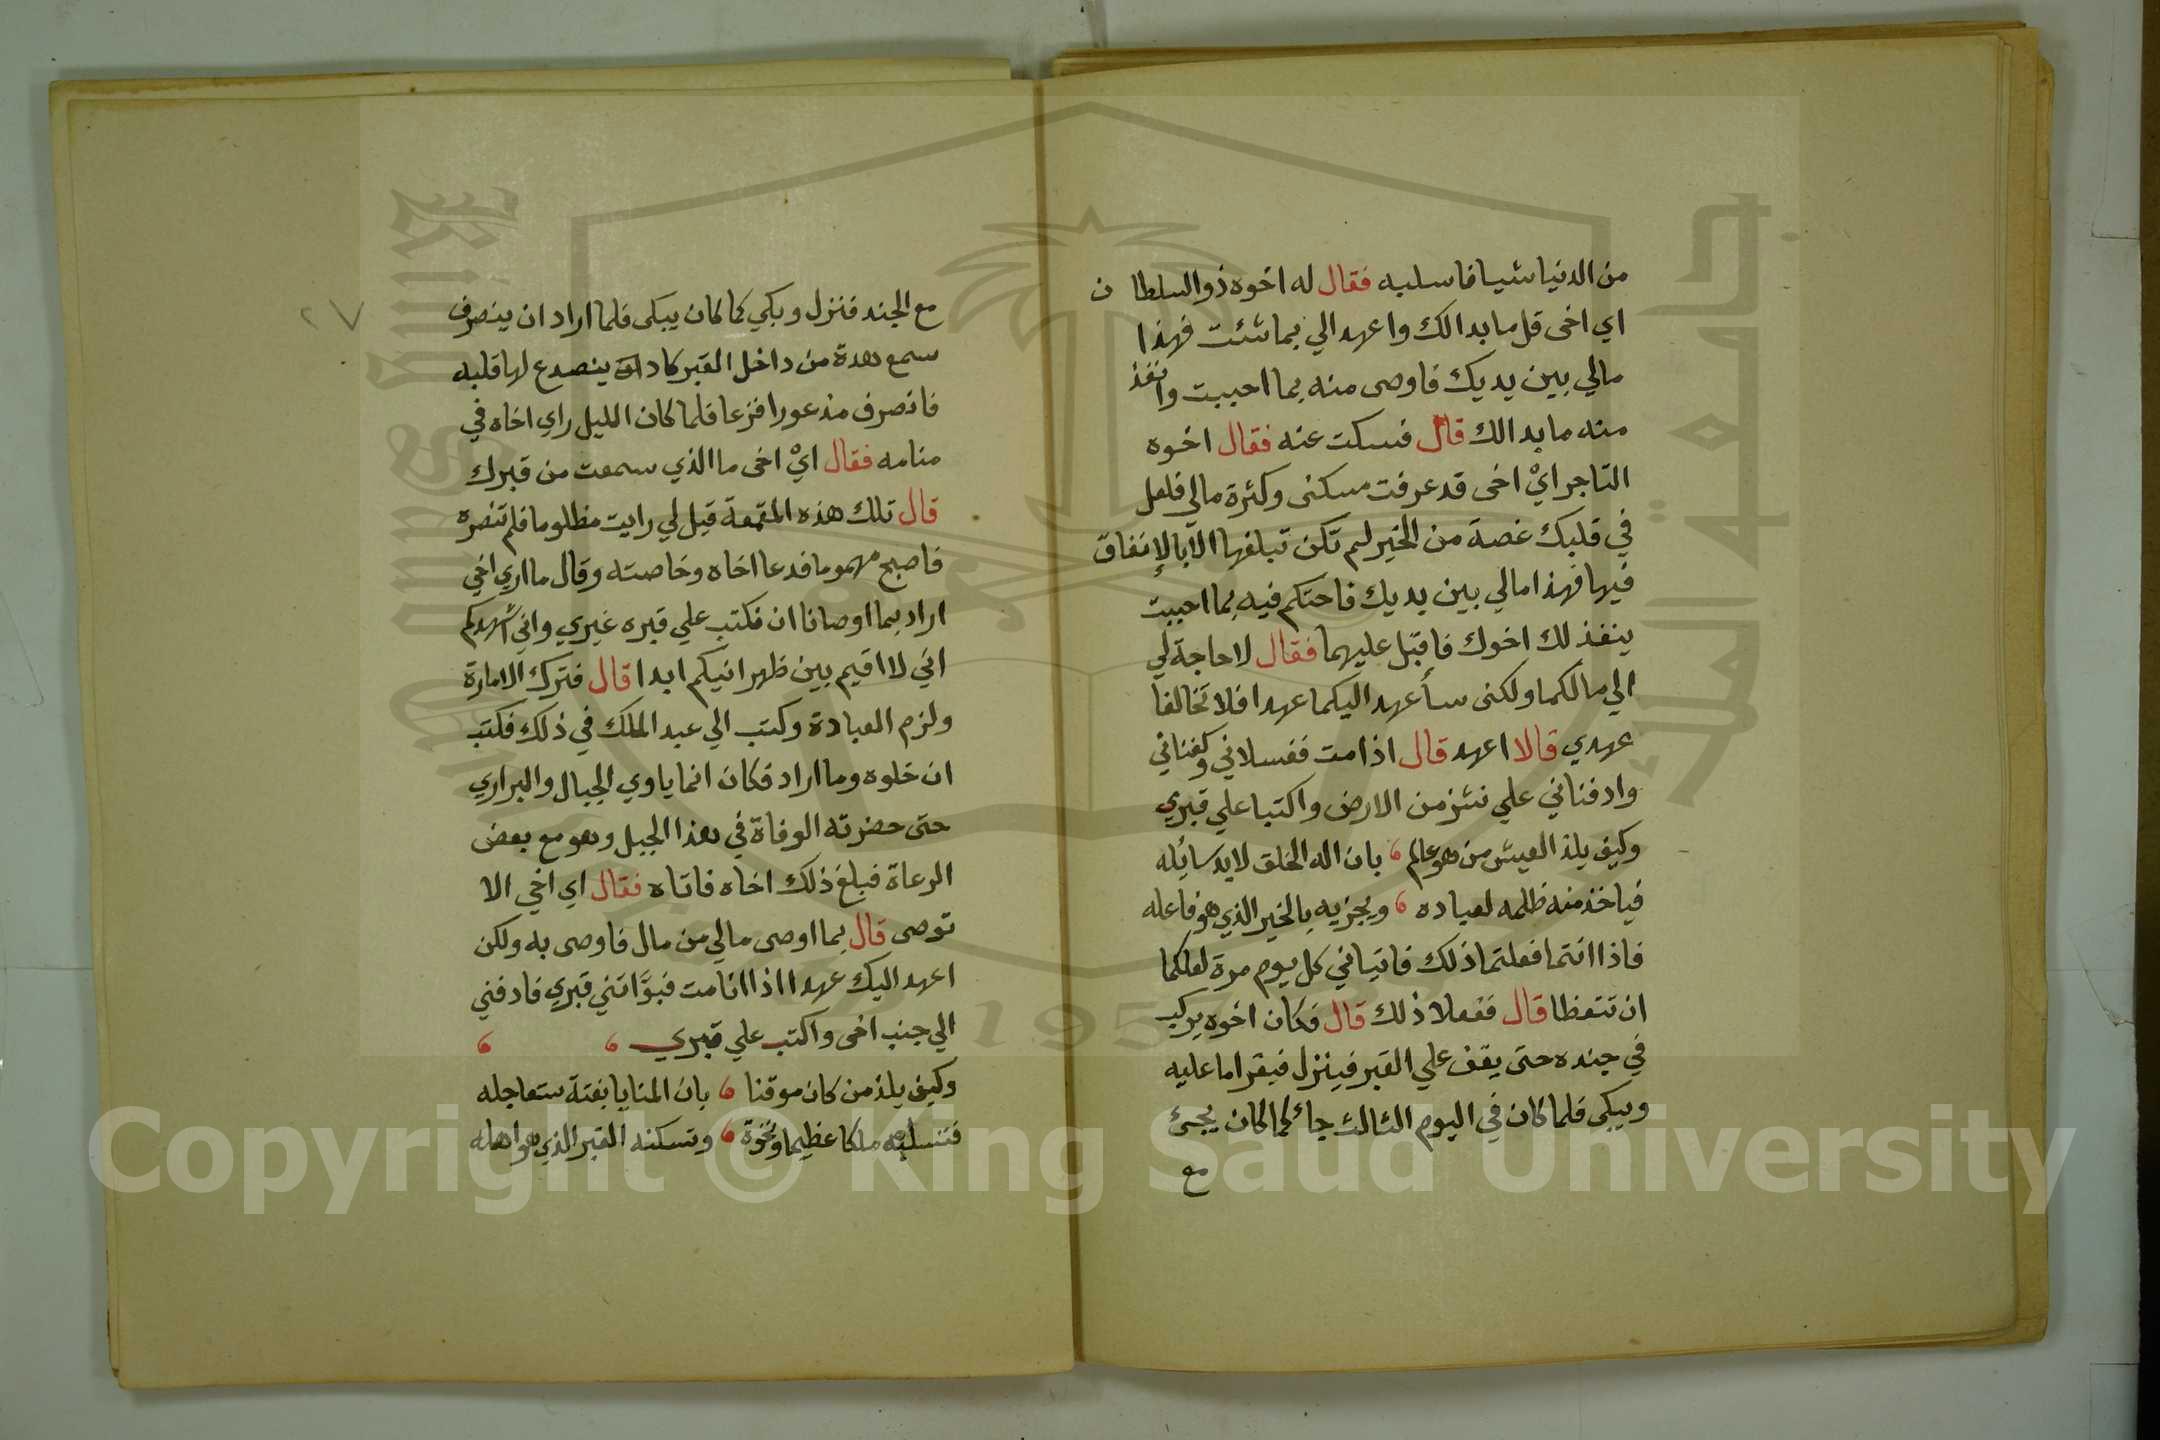 من الدنيا شيا فاسلبه فقال له اخوه ذو السلطان
اي اخي قل ما بدالك واعهد الي بما شئت فهذا
مالي بين يديك فاوصى منه بما احببت وانفذ
منه ما بدالك قال فسكت عنه فقال اخوه
التاجر ايْ اخى قد عرفت مسكنى وكثرة مالي فلعل
في قلبك غصة من الخير لم تكن تبلغها الا بالإنفاق
فيها فهذا مالي بين يديك فاحتكم فيه بما احببت
ينفذ لك اخوك فاقبل عليهما فقال لا حاجة لي
الي مالكما ولكنى سأعهد اليكما عهدا فلا تخالفا
عهدي قالا اعهد قال اذا مت فغسلاني وكفناني
وادفناني علي نشز من الارض واكتبا علي قبري
وكيف يلذ العيش من هو عالم بان اله الخلق لابد سائله
فياخذ منه ظلمه لعباده ويجزيه بالخير الذي هو فاعله
فاذا انتما فعلتما ذلك فاتياني كل يوم مرة لعلكما
ان تتعظا قال ففعلا ذلك قال فكان اخوه يركب
في جنده حتى يقف علي القبر فينزل فيقرا ما عليه
ويبكى فلما كان في اليوم الثالث جاء كما كان يجئ
مع
٢٧
مع الجند فنزل وبكي كما كان يبكى فلما اراد ان ينصرف
سمع هدة من داخل القبر كاد ان ينصدع لها قلبه
فانصرف مذعورا فزعا فلما كان الليل راي اخاه في
منامه فقال ايْ اخى ما الذي سمعت من قبرك
قال تلك هذه المقمعة قيل لي رايت مظلوما فلم تنصره
فاصبح مهموما فدعا اخاه وخاصته وقال ما اري اخي
اراد بما اوصانا ان نكتب علي قبره غيري واني اشهدكم
اني لا اقيم بين ظهرانيكم ابدا قال فترك الامارة
ولزم العبادة وكتب الي عبد الملك في ذلك فكتب
ان خلوه وما اراد فكان انما ياوي الجبال والبراري
حتى حضرته الوفاة في هذا الجبل وهو مع بعض
الرعاة فبلغ ذلك اخاه فاتاه فقال اي اخي الا
توصى قال بما اوصى مالي من مال فاوصى به ولكن
اعهد اليك عهدا اذا انا مت فبوَّاتني قبري فادفني
الي جنب اخى واكتب علي قبري
وكيف يلذ من كان موقنا بان المنايا بغتة ستعاجله
فتسلبه ملكا عظيما ونخوة وتسكنه القبر الذي هو اهله
Copyright © King Saud University
1957